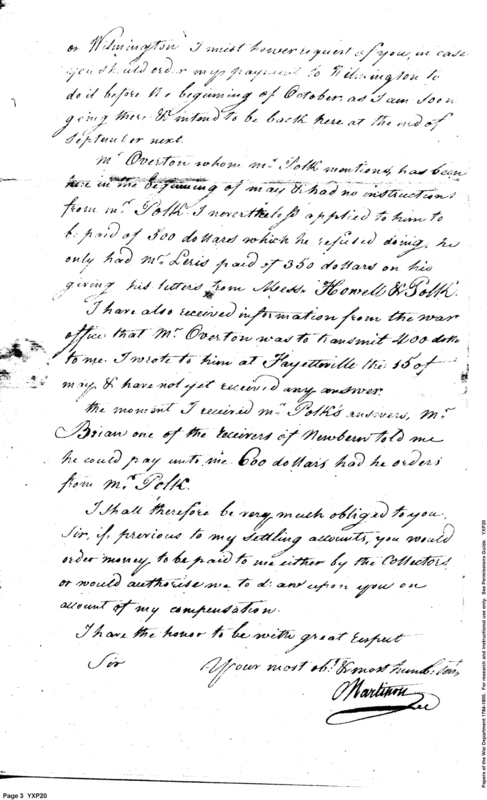 or Wilmington I must honour request of you, in case
you should order my payment to Wilmington to
do it before the beginning of October, as I am soon
going there & intend to be back here at the end of
September next.
Mr. Overton whom Mr. Polk mentions, has been
here in the beginning of may & had no instructions
from Mr. Polk. I nevertheless applied to him to
be paid of 500 dollars which he refused doing, he
only had Mr. Leris paid of 350 dollars on his
giving his letters from Mess. Howell & Polk.
I have also received information from the war
office that Mr. Overton was to transmit 400 dolls
to me. I wrote to him at Fayetteville the 15 of
may, & have not yet received any answer.
the moment I received Mr. Polk's answers, Mr.
Brian one of the receivers of Newbern told me
he could pay unto me 600 dollars had he orders
from Mr. Polk.
I shall therefore be very much obliged to you,
Sir, if, previous to my settling accounts, you would
order money to be paid to me either by the Collectors
or would authorise me to draw upon you on
account of my compensation.
I have the honor to be with great respect
Sir Your most obt. & most humb. Svt,
Martinon
Papers of the War Department 1784-1800. For research and instructional use only. See Permissions Guide. YXP20
Page 3 YXP20